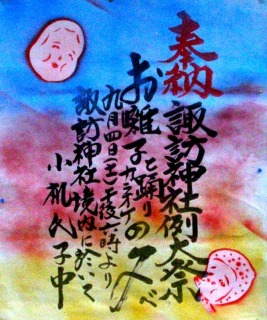 奉納
諏訪神社例大祭
お囃子と踊りの夕べ
九月四日(土)午後六時より
諏訪神社境内に於いて
小机氏子中